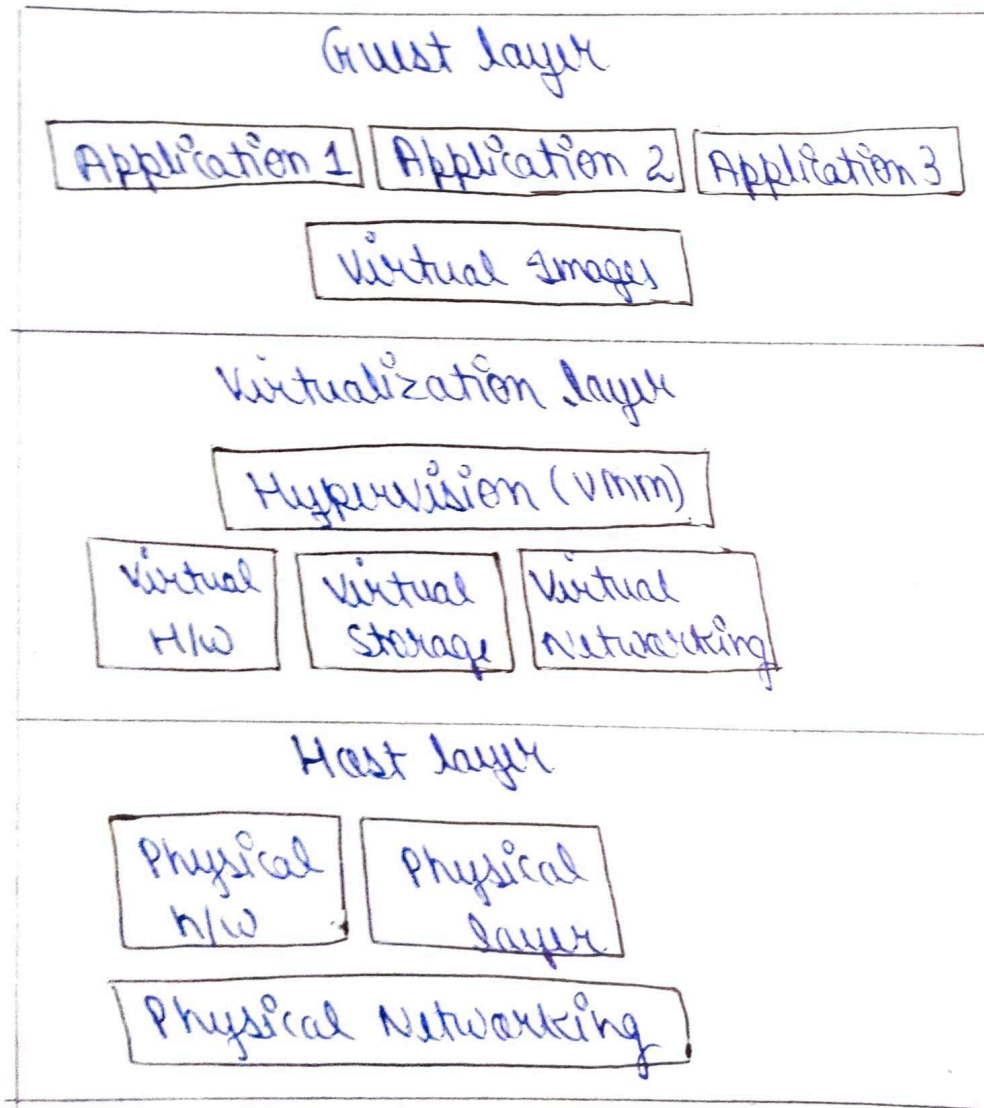 Guest layer
Application 1 Application 2 Application 3
Virtual Images
Virtualization layer
Hypervision (VMM)
Virtual Virtual Virtual
H/W Storage Networking
Host layer
Physical Physical
h/w layer
Physical Networking